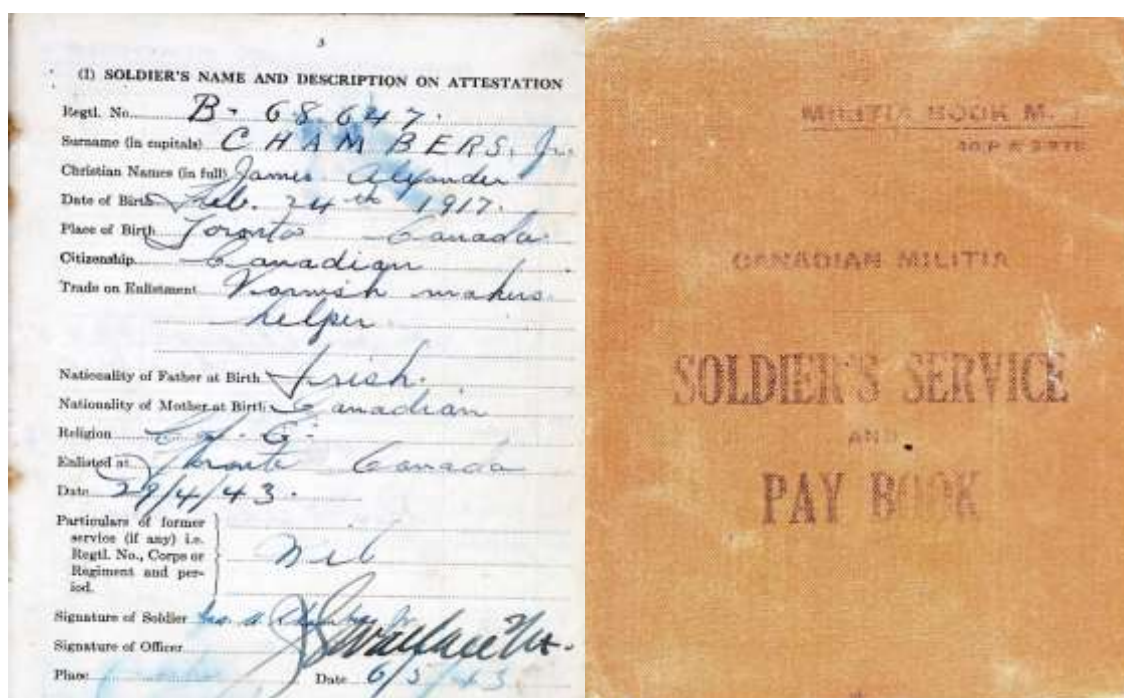 3
(I) SOLDIER'S NAME AND DESCRIPTION ON ATTESTATION
Regtl. No. B-68647.
Surname (in capitals) CHAMBERS. Jr.
Christian Names (in full) James Alexander
Date of Birth Feb. 24th 1917.
Place of Birth Toronto Canada.
Citizenship Canadian
Trade on Enlistment Varnish makers
helper
Nationality of Father at Birth Irish.
Nationality of Mother at Birth Canadian
Religion
Enlisted at Toronto Canada
Date 29/4/43.
Particulars of former
service (if any) i.e.
Regtl. No., Corps or
Regiment and per-
iod.
Nil
Signature of Soldier Jas. A. Chambers Jr.
Signature of Officer Wallace
Place Date 6/5/43.
MILITIA BOOK M. 1
CANADIAN MILITIA
SOLDIER'S SERVICE
AND
PAY BOOK